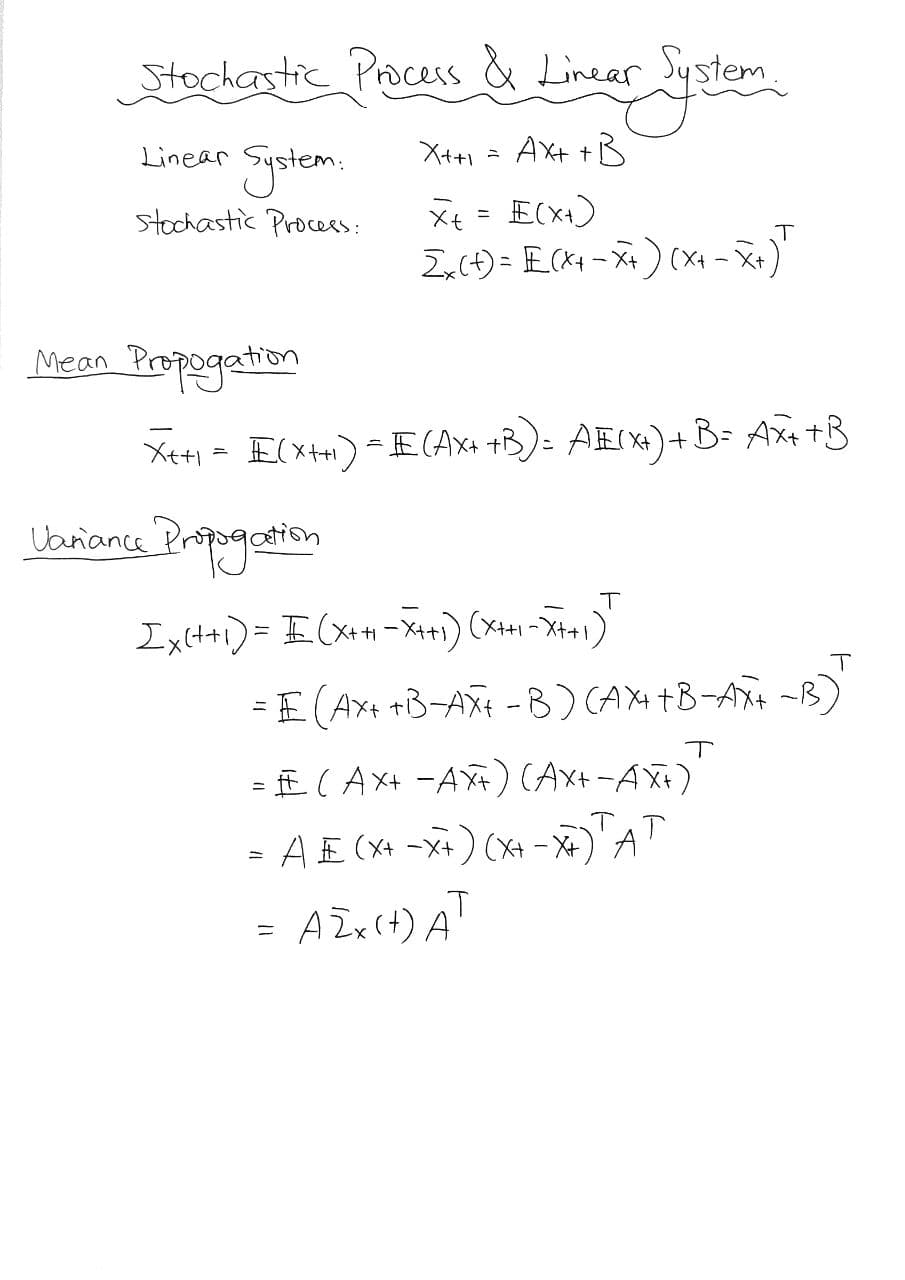 Stochastic Process & Linear System.
Linear System: X_{t+1} = AX_t + B
Stochastic Process: x̄_t = 𝔼(x_t)
Σ_x(t) = 𝔼(x_t − x̄_t)(x_t − x̄_t)^T
Mean Propogation
x̄_{t+1} = 𝔼(x_{t+1}) = 𝔼(Ax_t + B) = A𝔼(x_t) + B = Ax̄_t + B
Variance Propogation
Σ_x(t+1) = 𝔼(x_{t+1} − x̄_{t+1})(x_{t+1} − x̄_{t+1})^T
= 𝔼(Ax_t + B − Ax̄_t − B)(Ax_t + B − Ax̄_t − B)^T
= 𝔼(Ax_t − Ax̄_t)(Ax_t − Ax̄_t)^T
= A𝔼(x_t − x̄_t)(x_t − x̄_t)^T A^T
= AΣ_x(t)A^T